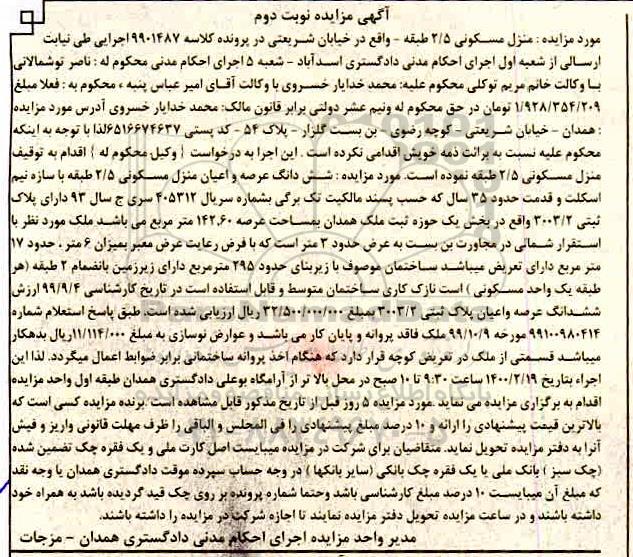 آگهی مزایده نوبت دوم
مورد مزایده : منزل مسکونی ۲/۵ طبقه - واقع در خیابان شریعتی در پرونده کلاسه ۹۹۰۱۴۸۷ اجرایی طی نیابت
ارسالی از شعبه اول اجرای احکام مدنی دادگستری اسدآباد - شعبه ۵ اجرای احکام مدنی محکوم له : ناصر توشمالاتی
با وکالت خانم مریم توکلی محکوم علیه: محمد خدایار خسروی با وکالت آقای امیر عباس پنبه ، محکوم به : فعلا مبلغ
۱/۹۲۸/۳۵۴/۲۰۹ تومان در حق محکوم له ونیم عشر دولتی برابر قانون مالک: محمد خدایار خسروی آدرس مورد مزایده
: همدان - خیابان شریعتی - کوچه رضوی - بن بست گلزار - پلاک ۵۴ - کد پستی ۶۵۱۶۶۷۴۶۳۷لذا با توجه به اینکه
محکوم علیه نسبت به برائت ذمه خویش اقدامی نکرده است . این اجرا به درخواست { وکیل محکوم له } اقدام به توقیف
منزل مسکونی ۲/۵ طبقه نموده است. مورد مزایده : شش دانگ عرصه و اعیان منزل مسکونی ۲/۵ طبقه با سازه نیم
اسکلت و قدمت حدود ۳۵ سال که حسب پسند مالکیت تک برگی بشماره سریال ۴۰۵۳۱۲ سری ج سال ۹۳ دارای پلاک
ثبتی ۳۰۰۳/۲ واقع در بخش یک حوزه ثبت ملک همدان بمساحت عرصه ۱۴۲،۶۰ متر مربع می باشد ملک مورد نظر با
استقرار شمالی در مجاورت بن بست به عرض حدود ۳ متر است که با فرض رعایت عرض معبر بمیزان ۶ متر ، حدود ۱۷
متر مربع دارای تعریض میباشد ساختمان موصوف با زیربنای حدود ۲۹۵ مترمربع دارای زیرزمین بانضمام ۲ طبقه (هر
طبقه یک واحد مسکونی ) است نازک کاری ساختمان متوسط و قابل استفاده است در تاریخ کارشناسی ۹۹/۹/۴ ارزش
ششدانگ عرصه واعیان پلاک ثبتی ۳۰۰۳/۲ بمبلغ ۳۲/۵۰۰/۰۰۰/۰۰۰ ریال ارزیابی شده است. طبق پاسخ استعلام شماره
۹۹۱۰۰۹۸۰۴۱۴ مورخه ۹۹/۱۰/۹ ملک فاقد پروانه و پایان کار می باشد و عوارض نوسازی به مبلغ ۱۱/۱۱۴/۰۰۰ریال بدهکار
میباشد قسمتی از ملک در تعریض کوچه قرار دارد که هنگام اخذ پروانه ساختمانی برابر ضوابط اعمال میگردد. لذا این
اجراء بتاریخ ۱۴۰۰/۲/۱۹ ساعت ۹:۳۰ تا ۱۰ صبح در محل بالا تر از آرامگاه بوعلی دادگستری همدان طبقه اول واحد مزایده
اقدام به برگزاری مزایده می نماید .مورد مزایده ۵ روز قبل از تاریخ مذکور قابل مشاهده است. برنده مزایده کسی است که
بالاترین قیمت پیشنهادی را ارائه و ۱۰ درصد مبلغ پیشنهادی را فی المجلس و الباقی را ظرف مهلت قانونی واریز و فیش
آنرا به دفتر مزایده تحویل نماید. متقاضیان برای شرکت در مزایده میبایست اصل کارت ملی و یک فقره چک تضمین شده
(چک سبز ) بانک ملی یا یک فقره چک بانکی (سایر بانکها ) در وجه حساب سپرده موقت دادگستری همدان یا وجه نقد
که مبلغ آن میبایست ۱۰ درصد مبلغ کارشناسی باشد وحتما شماره پرونده بر روی چک قید گردیده باشد به همراه خود
داشته باشند و در ساعت مزایده تحویل دفتر مزایده نمایند تا اجازه شرکت در مزایده را داشته باشند.
مدیر واحد مزایده اجرای احکام مدنی دادگستری همدان - مزجات